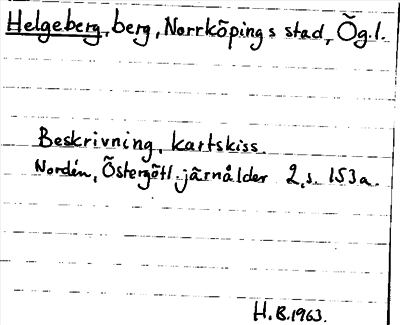 Helgeberg, berg, Norrköpings stad, Ög.l.
Beskrivning, kartskiss.
Nordén, Östergötl. järnålder 2, s. 153a.
H.B.1963.